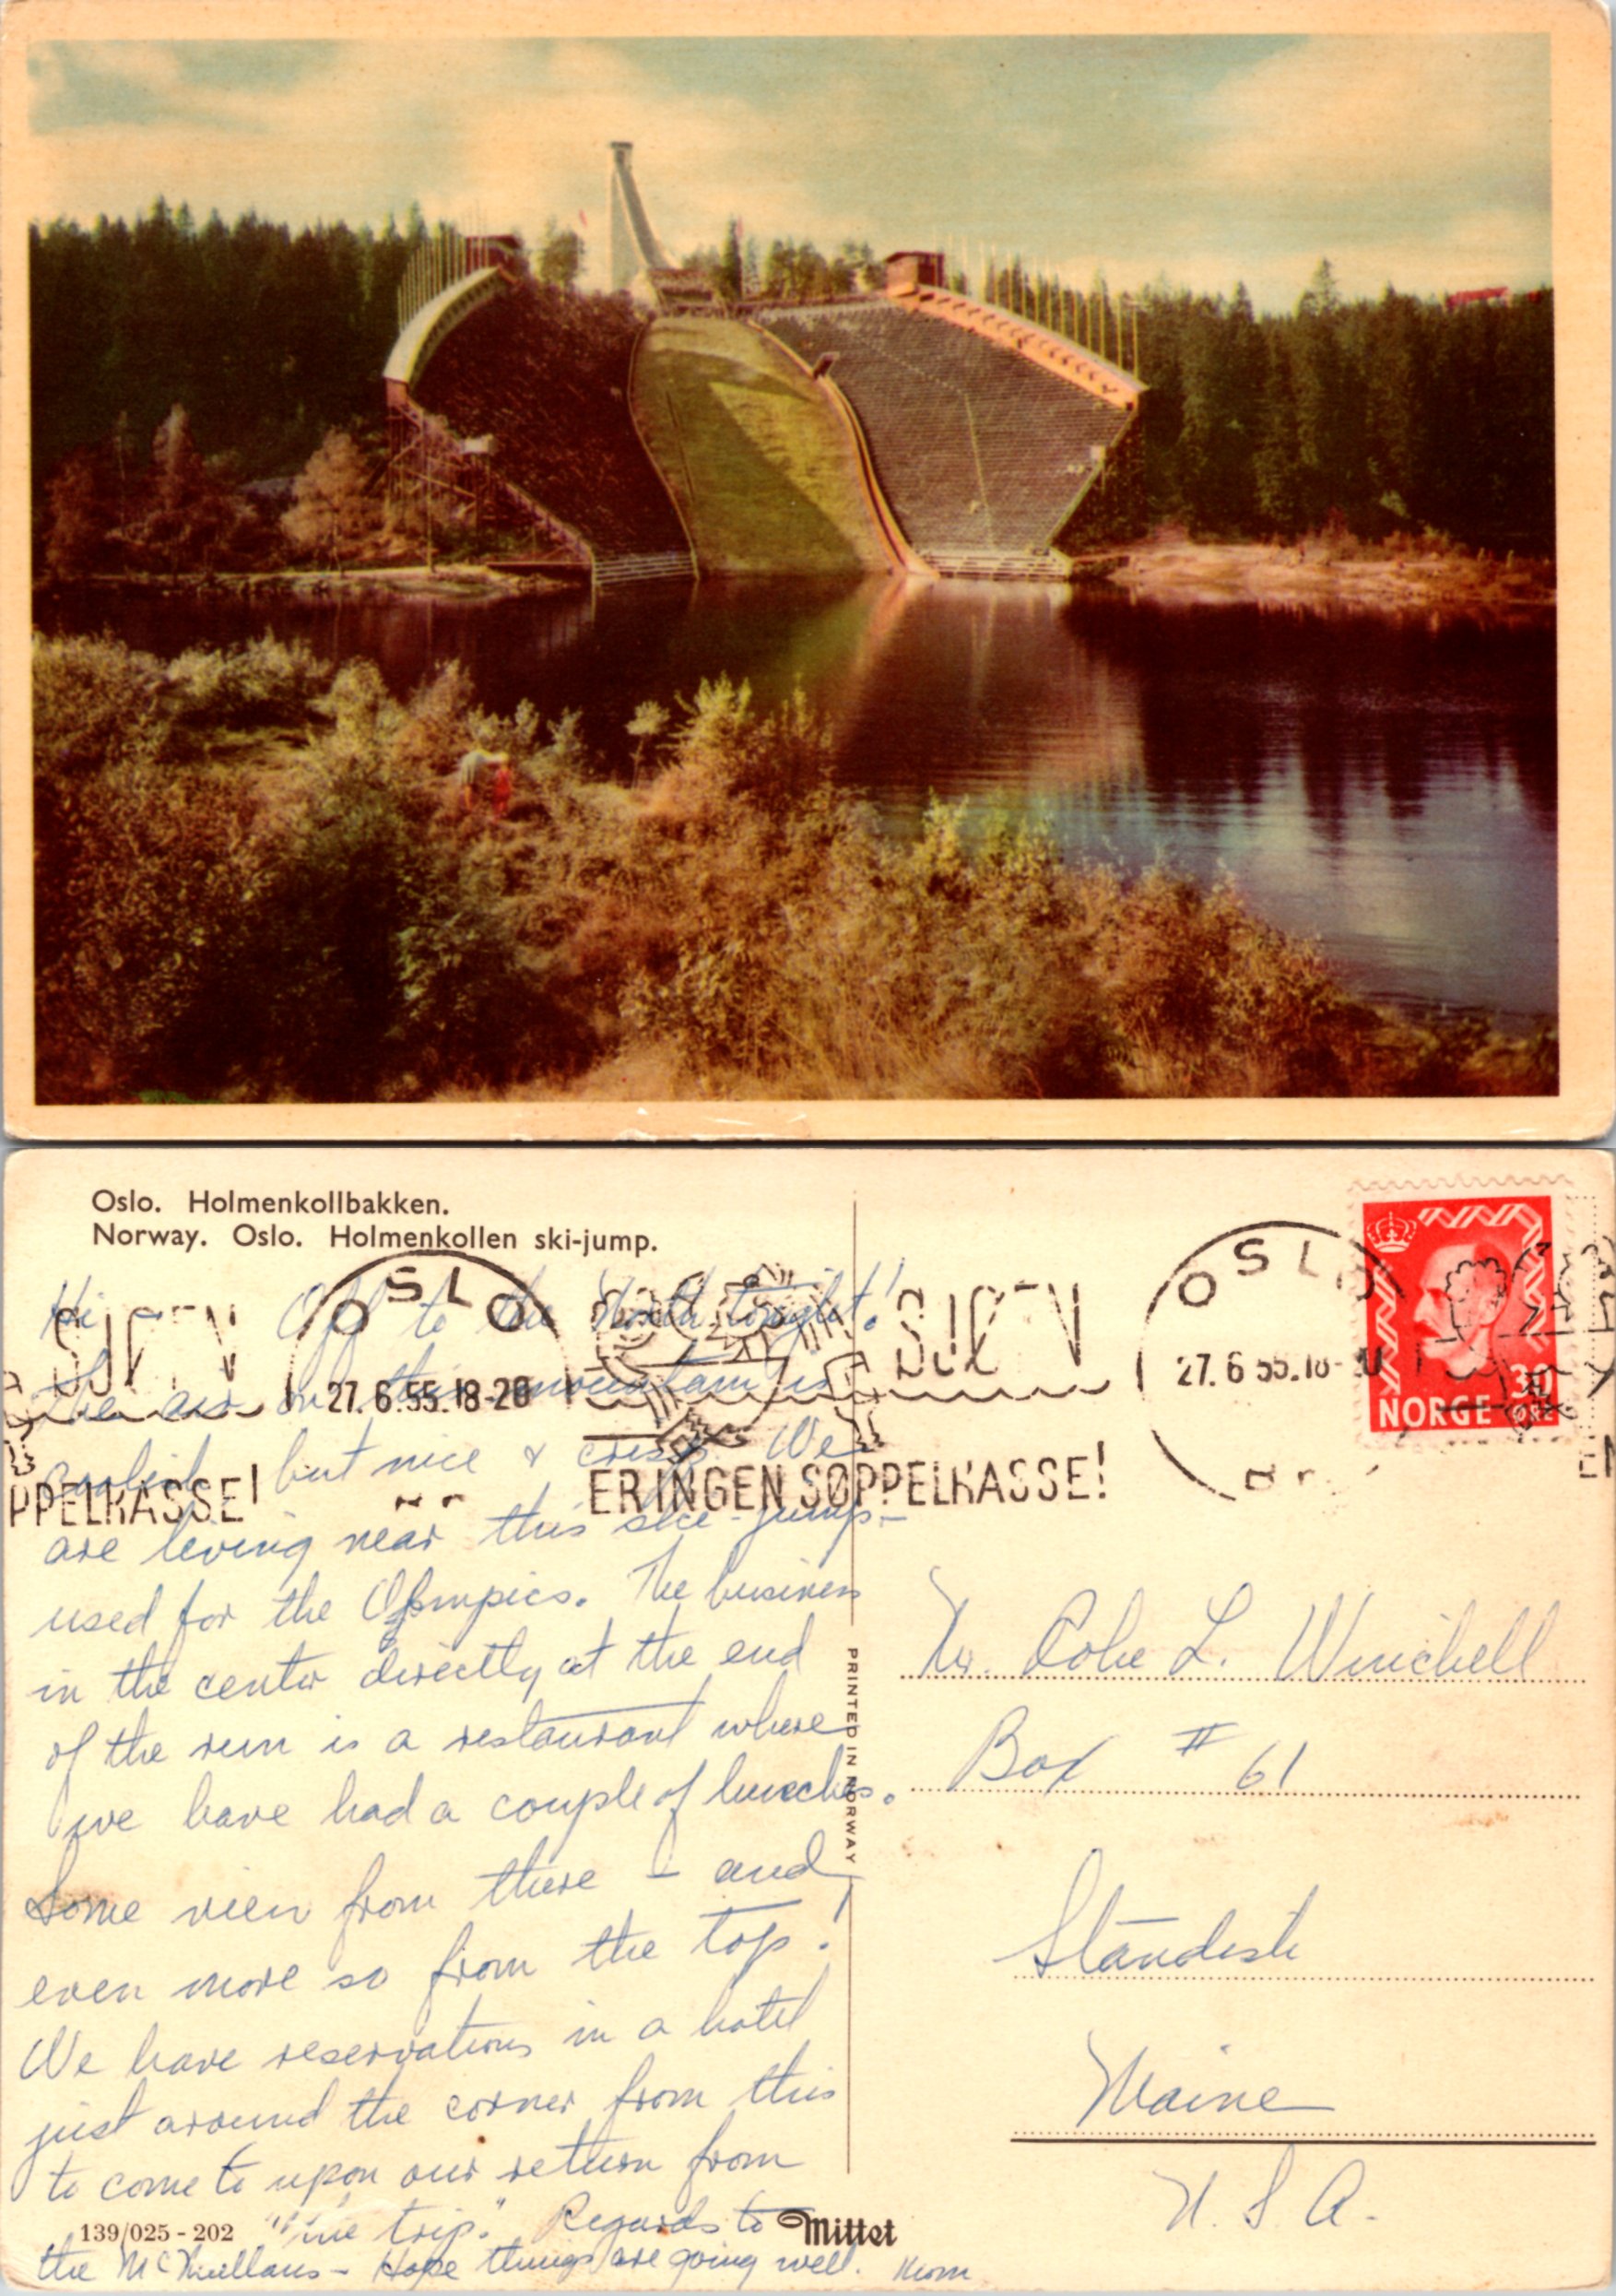 Oslo. Holmenkollbakken.
Norway. Oslo. Holmenkollen ski-jump.
Hi — Off to the North tonight!
The air on this mountain is
coolish but nice & crisp. We
are living near this ski-jump—
used for the Olympics. The business
in the center directly at the end
of the run is a restaurant where
we have had a couple of lunches.
Some view from there — and
even more so from the top!
We have reservations in a hotel
just around the corner from this
to come to upon our return from
trip." Regards to
the — Hope things are going well. Mom
139/025 - 202
Mittet
PRINTED IN NORWAY
OSLO
27.6.55.18-20
ERINGEN SØPPELKASSE!
PPELKASSE!
OSLO
27.6.55.18-
NORGE
30
ØRE
Mr. Cole L. Winchell
Box # 61
Standish
Maine
U. S. A.